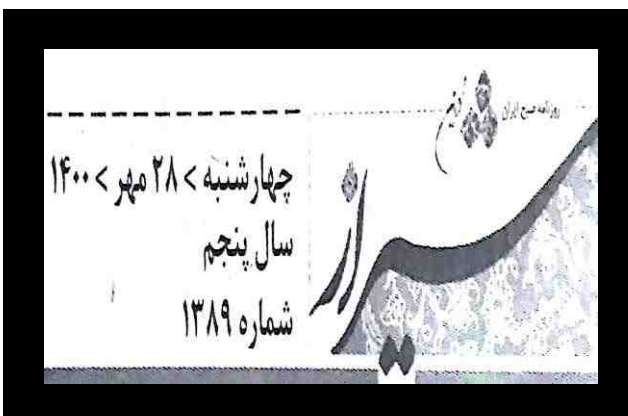 روزنامه صبح ایران
شیراز
چهارشنبه > ۲۸ مهر > ۱۴۰۰
سال پنجم
شماره ۱۳۸۹